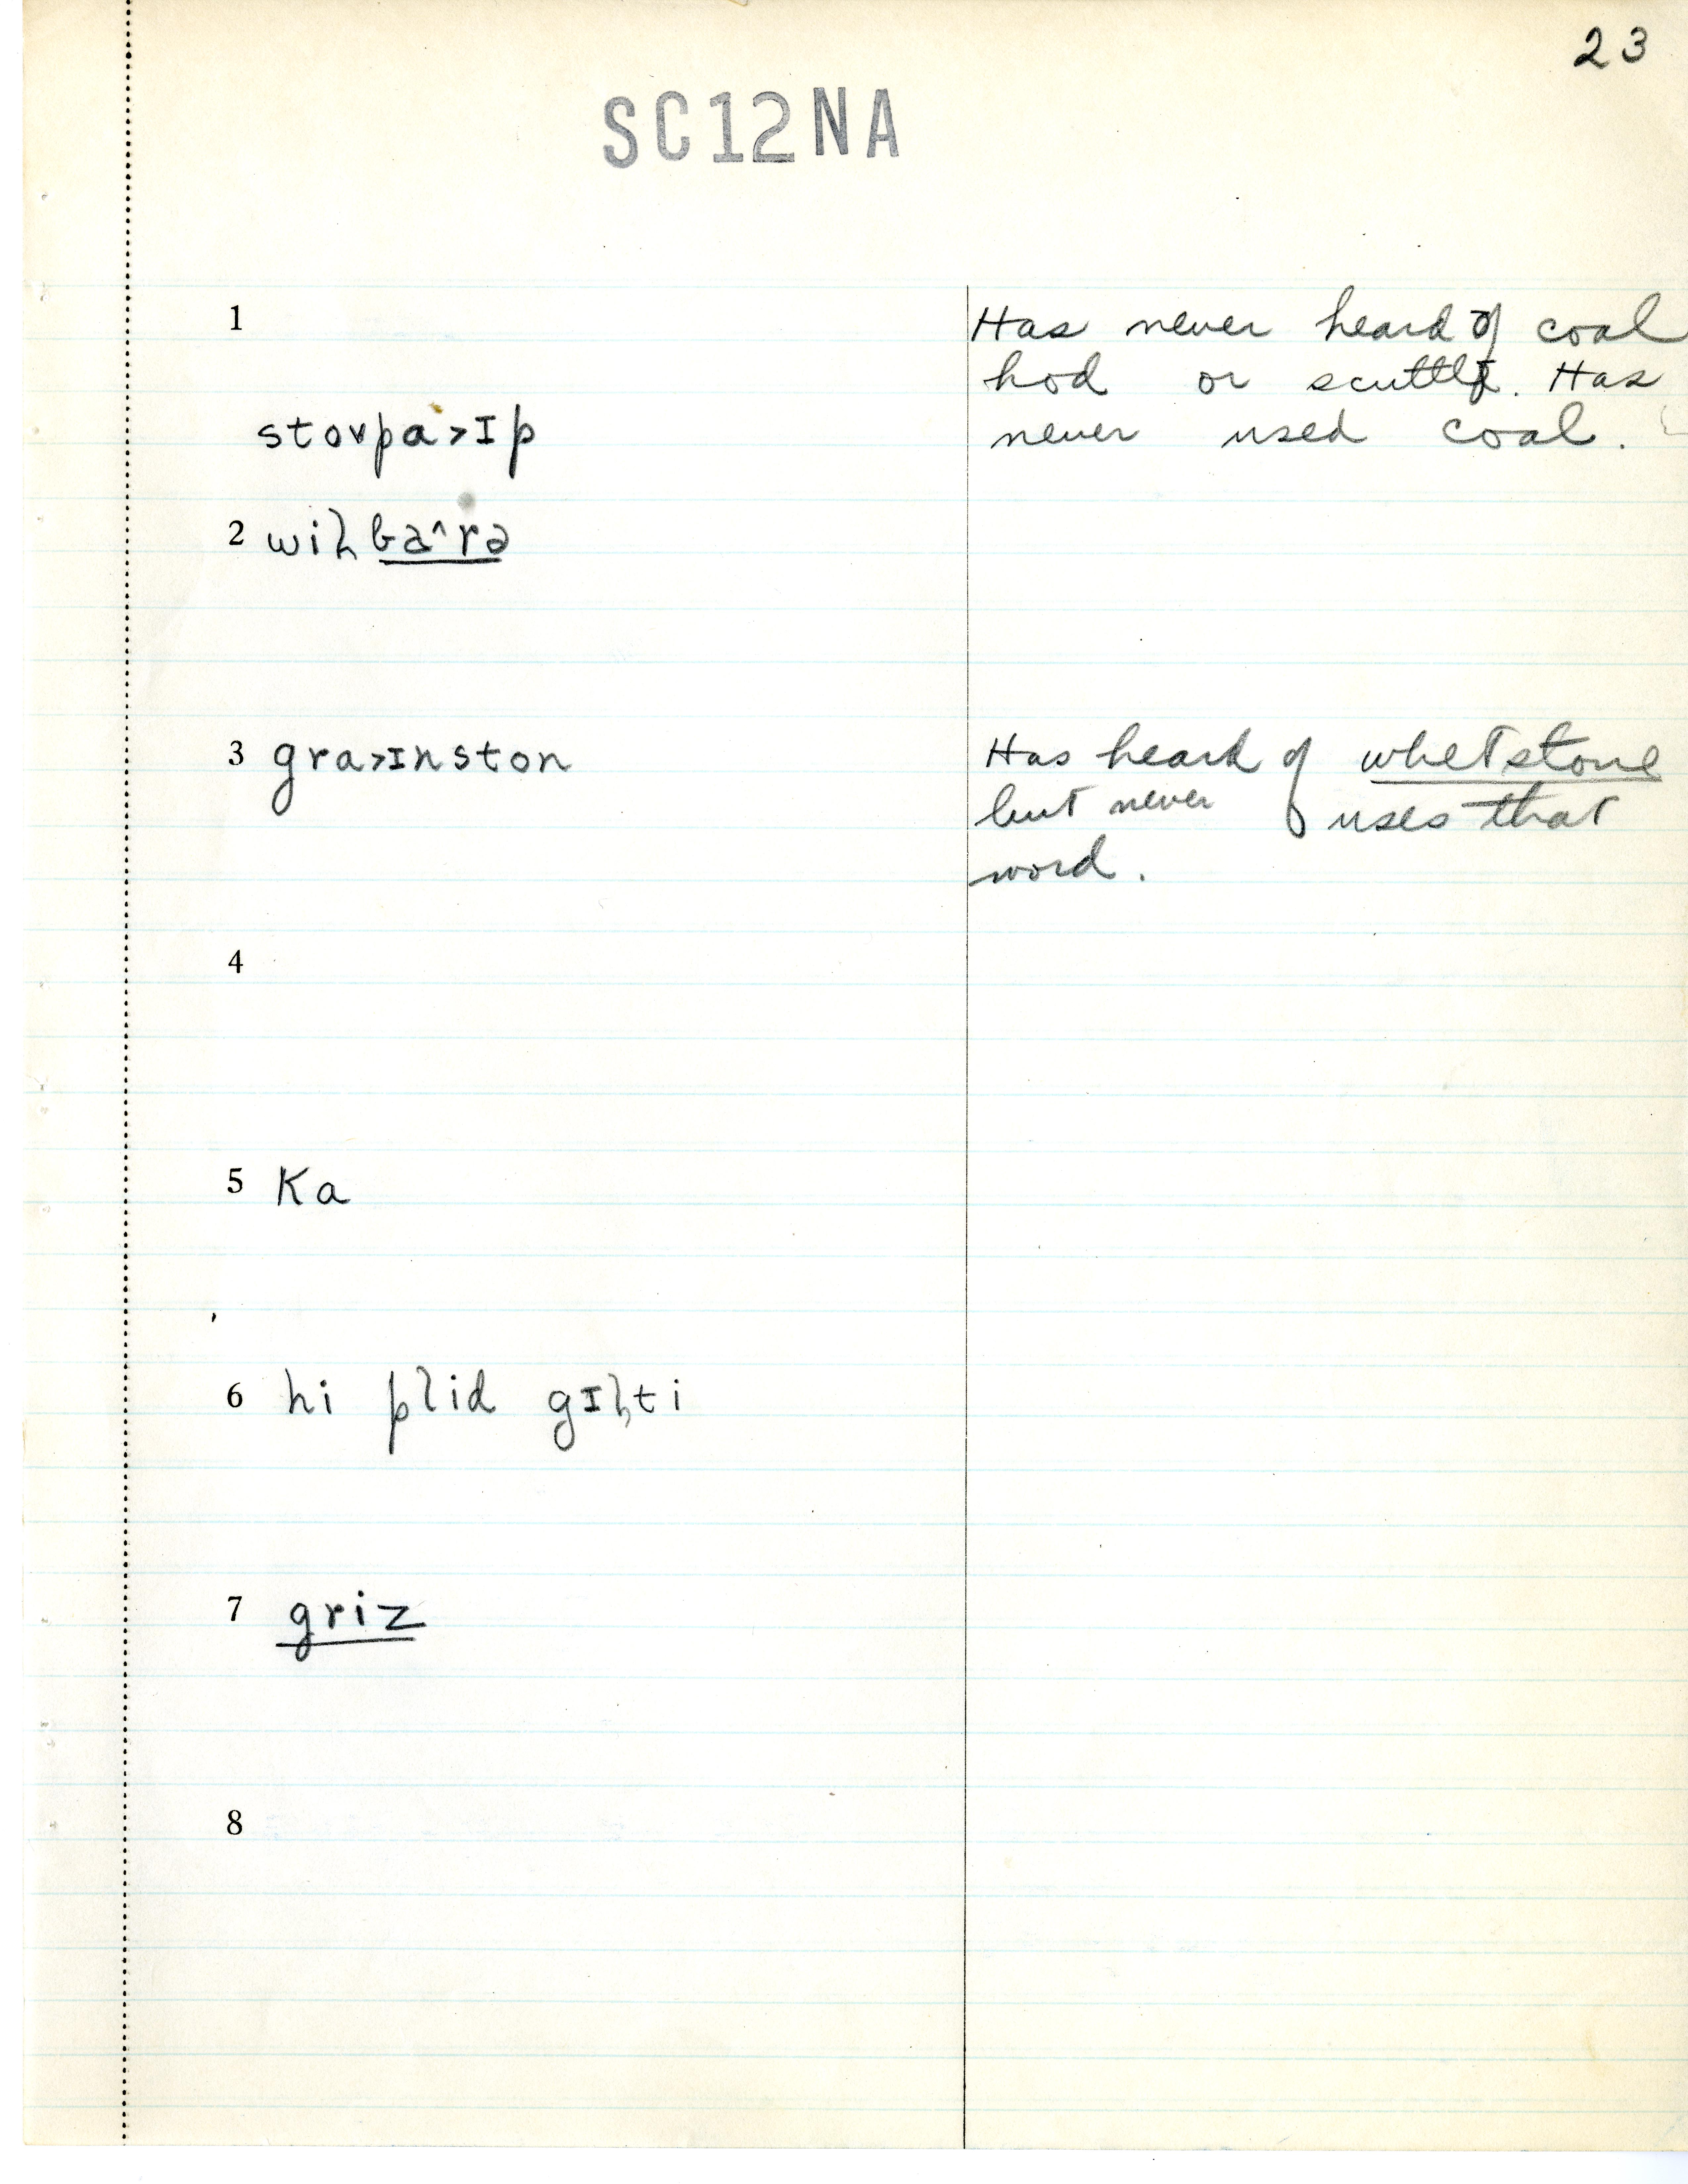 23
SC12NA
1
Has never heard of coal
hod or scuttle. Has
never used coal.
stovpa>ɪp
2 wiɫba^rə
3 gra>ɪnston
Has heard of whetstone
but never uses that
word.
4
5 ka
6 hi plid gɪɫti
7 griz
8